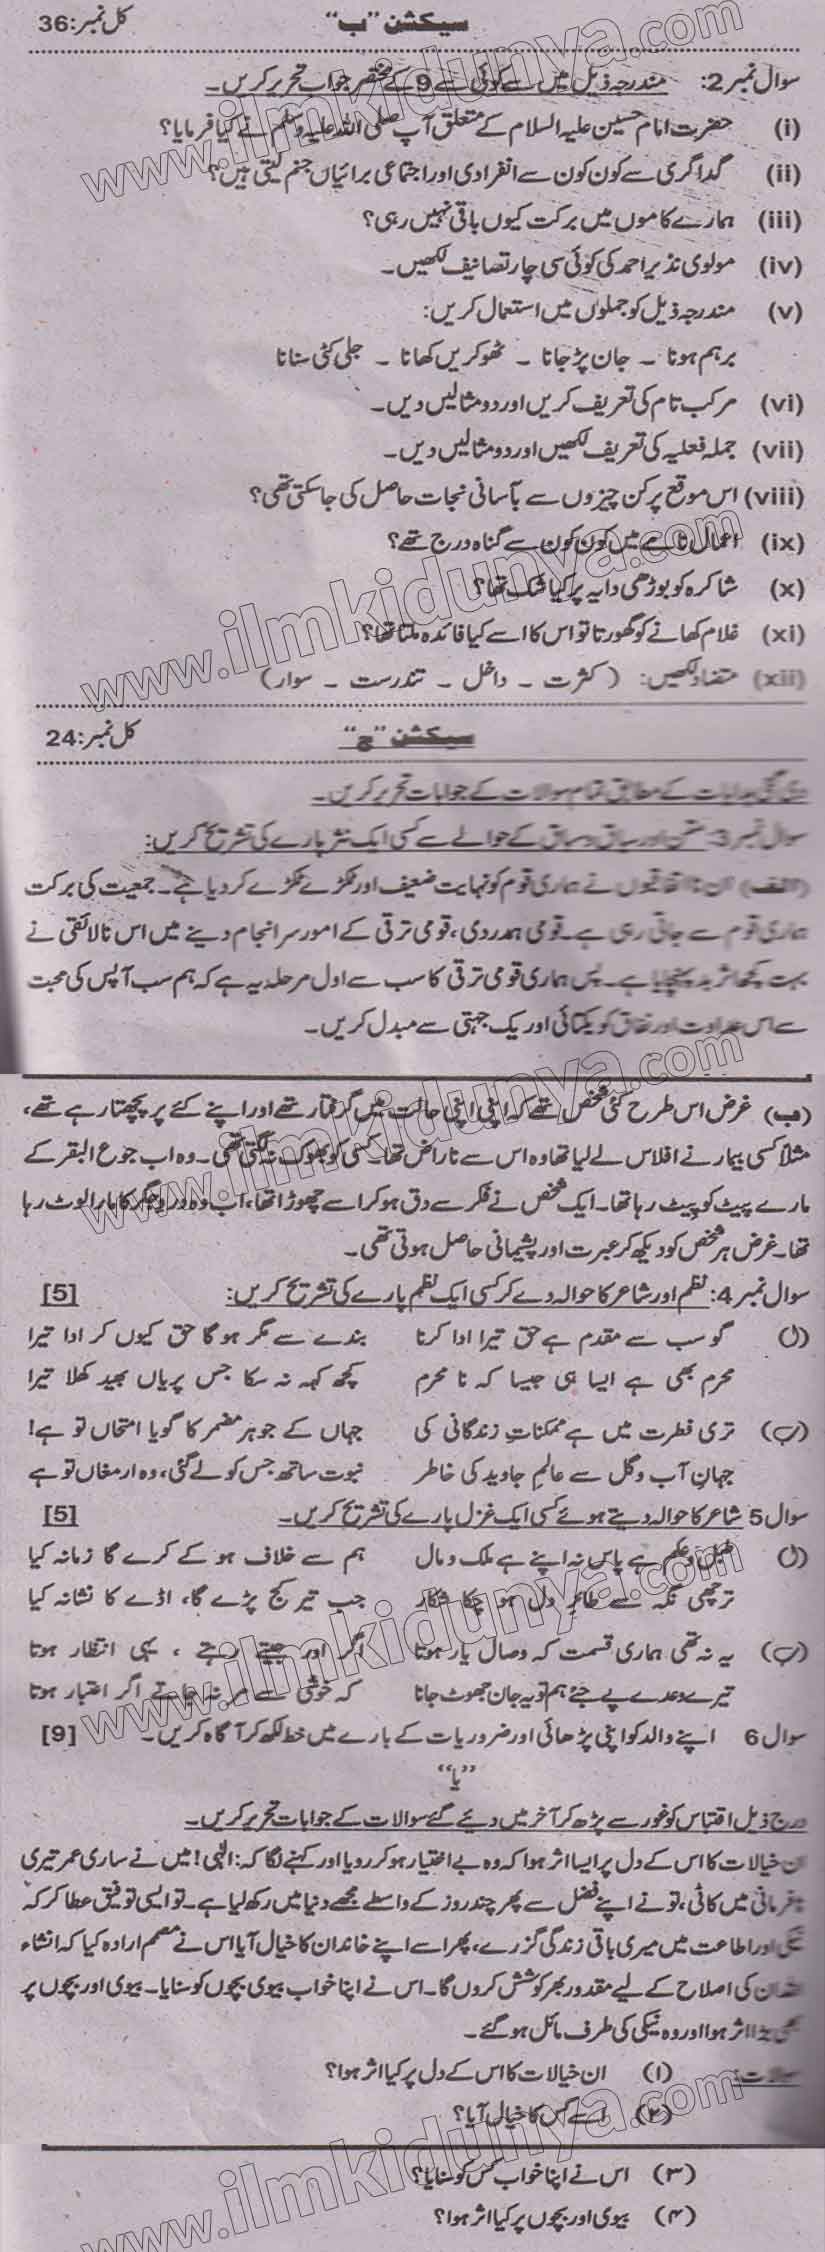 سیکشن "ب" کل نمبر:36
سوال نمبر 2: مندرجہ ذیل میں سے کوئی سے 9 کے مختصر جواب تحریر کریں۔
(i) حضرت امام حسین علیہ السلام کے متعلق آپ صلی اللہ علیہ وسلم نے کیا فرمایا؟
(ii) گداگری سے کون کون سے انفرادی اور اجتماعی برائیاں جنم لیتی ہیں؟
(iii) ہمارے کاموں میں برکت کیوں باقی نہیں رہی؟
(iv) مولوی نذیر احمد کی کوئی سی چار تصانیف لکھیں۔
(v) مندرجہ ذیل کو جملوں میں استعمال کریں:
برہم ہونا ۔ جان پڑ جانا ۔ ٹھوکریں کھانا ۔ جلی کٹی سنانا
(vi) مرکب تام کی تعریف کریں اور دو مثالیں دیں۔
(vii) جملہ فعلیہ کی تعریف لکھیں اور دو مثالیں دیں۔
(viii) اس موقع پر کن چیزوں سے بآسانی نجات حاصل کی جا سکتی تھی؟
(ix) اعمال نامے میں کون کون سے گناہ درج تھے؟
(x) شاکرہ کو بوڑھی دایہ پر کیا شک تھا؟
(xi) غلام کھانے کو گھورتا تو اس کا اسے کیا فائدہ ملتا تھا؟
(xii) متضاد لکھیں: (کثرت ۔ داخل ۔ تندرست ۔ سوار)
سیکشن "ج" کل نمبر:24
دی گئی ہدایات کے مطابق تمام سوالات کے جوابات تحریر کریں۔
سوال نمبر 3: متن اور سیاق و سباق کے حوالے سے کسی ایک نثر پارے کی تشریح کریں:
(الف) ان نااتفاقیوں نے ہماری قوم کو نہایت ضعیف اور ٹکڑے ٹکڑے کر دیا ہے۔ جمعیت کی برکت
ہماری قوم سے جاتی رہی ہے۔ قومی ہمدردی، قومی ترقی کے امور سر انجام دینے میں اس نالائقی نے
بہت کچھ اثر بد پہنچایا ہے۔ پس ہماری قومی ترقی کا سب سے اول مرحلہ یہ ہے کہ ہم سب آپس کی محبت
سے اس عداوت اور نفاق کو یکتائی اور یک جہتی سے مبدل کریں۔
(ب) غرض اس طرح کئی شخص تھے کہ اپنی اپنی حالت میں گرفتار تھے اور اپنے کئے پر پچھتا رہے تھے،
مثلاً کسی بیمار نے افلاس لے لیا تھا وہ اس سے ناراض تھا۔ کسی کو بھوک نہ لگتی تھی۔ وہ اب جوع البقر کے
مارے پیٹ کو پیٹ رہا تھا۔ ایک شخص نے فکر سے دق ہو کر اسے چھوڑا تھا، اب وہ درد جگر کا مارا لوٹ رہا
تھا۔ غرض ہر شخص کو دیکھ کر عبرت اور پشیمانی حاصل ہوتی تھی۔
سوال نمبر 4: نظم اور شاعر کا حوالہ دے کر کسی ایک نظم پارے کی تشریح کریں: [5]
(ا) گو سب سے مقدم ہے حق تیرا ادا کرنا بندے سے مگر ہو گا حق کیوں کر ادا تیرا
محرم بھی ہے ایسا ہی جیسا کہ نا محرم کچھ کہہ نہ سکا جس پر یاں بھید کھلا تیرا
(ب) تری فطرت میں ہے ممکناتِ زندگانی کی جہاں کے جوہر مضمر کا گویا امتحاں تو ہے!
جہانِ آب و گل سے عالمِ جاوید کی خاطر نبوت ساتھ جس کو لے گئی، وہ ارمغاں تو ہے
سوال 5 شاعر کا حوالہ دیتے ہوئے کسی ایک غزل پارے کی تشریح کریں۔ [5]
(ا) طبل و علم ہے پاس نہ اپنے ہے ملک و مال ہم سے خلاف ہو کے کرے گا زمانہ کیا
ترچھی نگہ سے طائرِ دل ہو چکا شکار جب تیر کج پڑے گا، اڈے کا نشانہ کیا
(ب) یہ نہ تھی ہماری قسمت کہ وصال یار ہوتا اگر اور جیتے رہتے ، یہی انتظار ہوتا
تیرے وعدے پے جئے ہم تو یہ جان جھوٹ جانا کہ خوشی سے مر نہ جاتے اگر اعتبار ہوتا
سوال 6 اپنے والد کو اپنی پڑھائی اور ضروریات کے بارے میں خط لکھ کر آگاہ کریں۔ [9]
"یا"
درج ذیل اقتباس کو غور سے پڑھ کر آخر میں دیئے گئے سوالات کے جوابات تحریر کریں۔
ان خیالات کا اس کے دل پر ایسا اثر ہوا کہ وہ بے اختیار ہو کر رو دیا اور کہنے لگا کہ: الٰہی! میں نے ساری عمر تیری
نافرمانی میں کاٹی، تو نے اپنے فضل سے پھر چند روز کے واسطے مجھے دنیا میں رکھ لیا ہے۔ تو ایسی توفیق عطا کر کہ
نیکی اور اطاعت میں میری باقی زندگی گزرے، پھر اسے اپنے خاندان کا خیال آیا اس نے مصمم ارادہ کیا کہ انشاء
اللہ ان کی اصلاح کے لیے مقدور بھر کوشش کروں گا۔ اس نے اپنا خواب بیوی بچوں کو سنایا۔ بیوی اور بچوں پر
بھی بڑا اثر ہوا اور وہ نیکی کی طرف مائل ہو گئے۔
سوالات: (۱) ان خیالات کا اس کے دل پر کیا اثر ہوا؟
(۲) اسے کس کا خیال آیا؟
(۳) اس نے اپنا خواب کس کو سنایا؟
(۴) بیوی اور بچوں پر کیا اثر ہوا؟
www.ilmkidunya.com
www.ilmkidunya.com
www.ilmkidunya.com
www.ilmkidunya.com
www.ilmkidunya.com